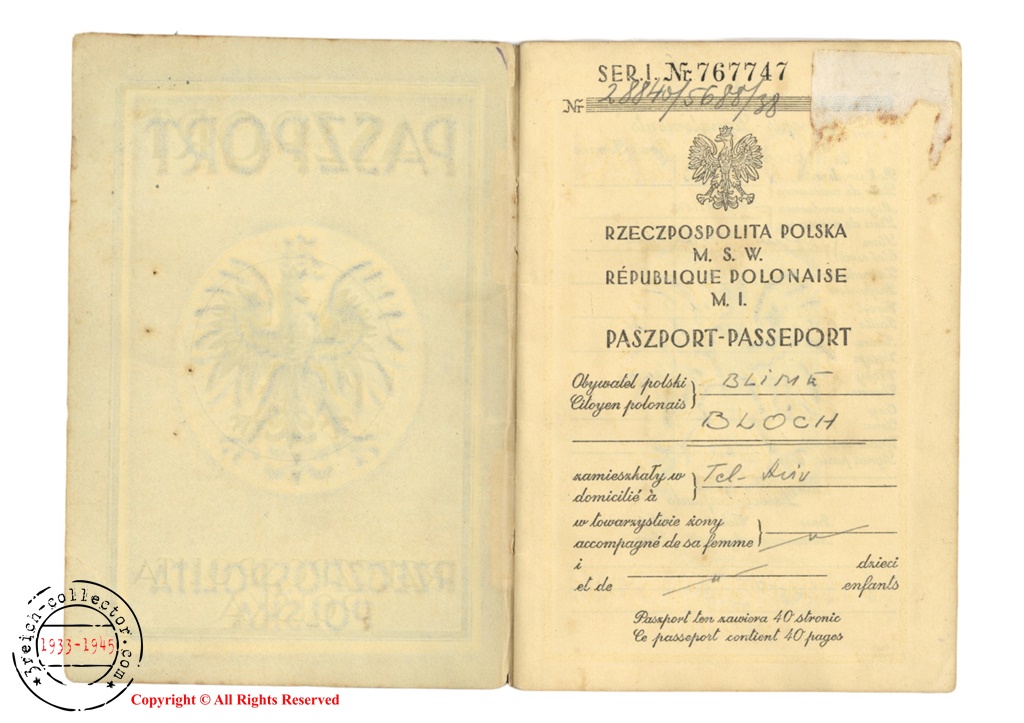 PASZPORT
RZECZPOSPOLITA
POLSKA
SER. I. Nr 767747
Nr 28840/5688/38
RZECZPOSPOLITA POLSKA
M. S. W.
RÉPUBLIQUE POLONAISE
M. I.
PASZPORT-PASSEPORT
Obywatel polski
Citoyen polonais
BLIME
BLOCH
zamieszkały w
domicilié à
Tel-Aviv
w towarzystwie żony
accompagné de sa femme
i dzieci
et de enfants
Paszport ten zawiera 40 stronic
Ce passeport contient 40 pages
3reich-collector.com
1933-1945
Copyright © All Rights Reserved